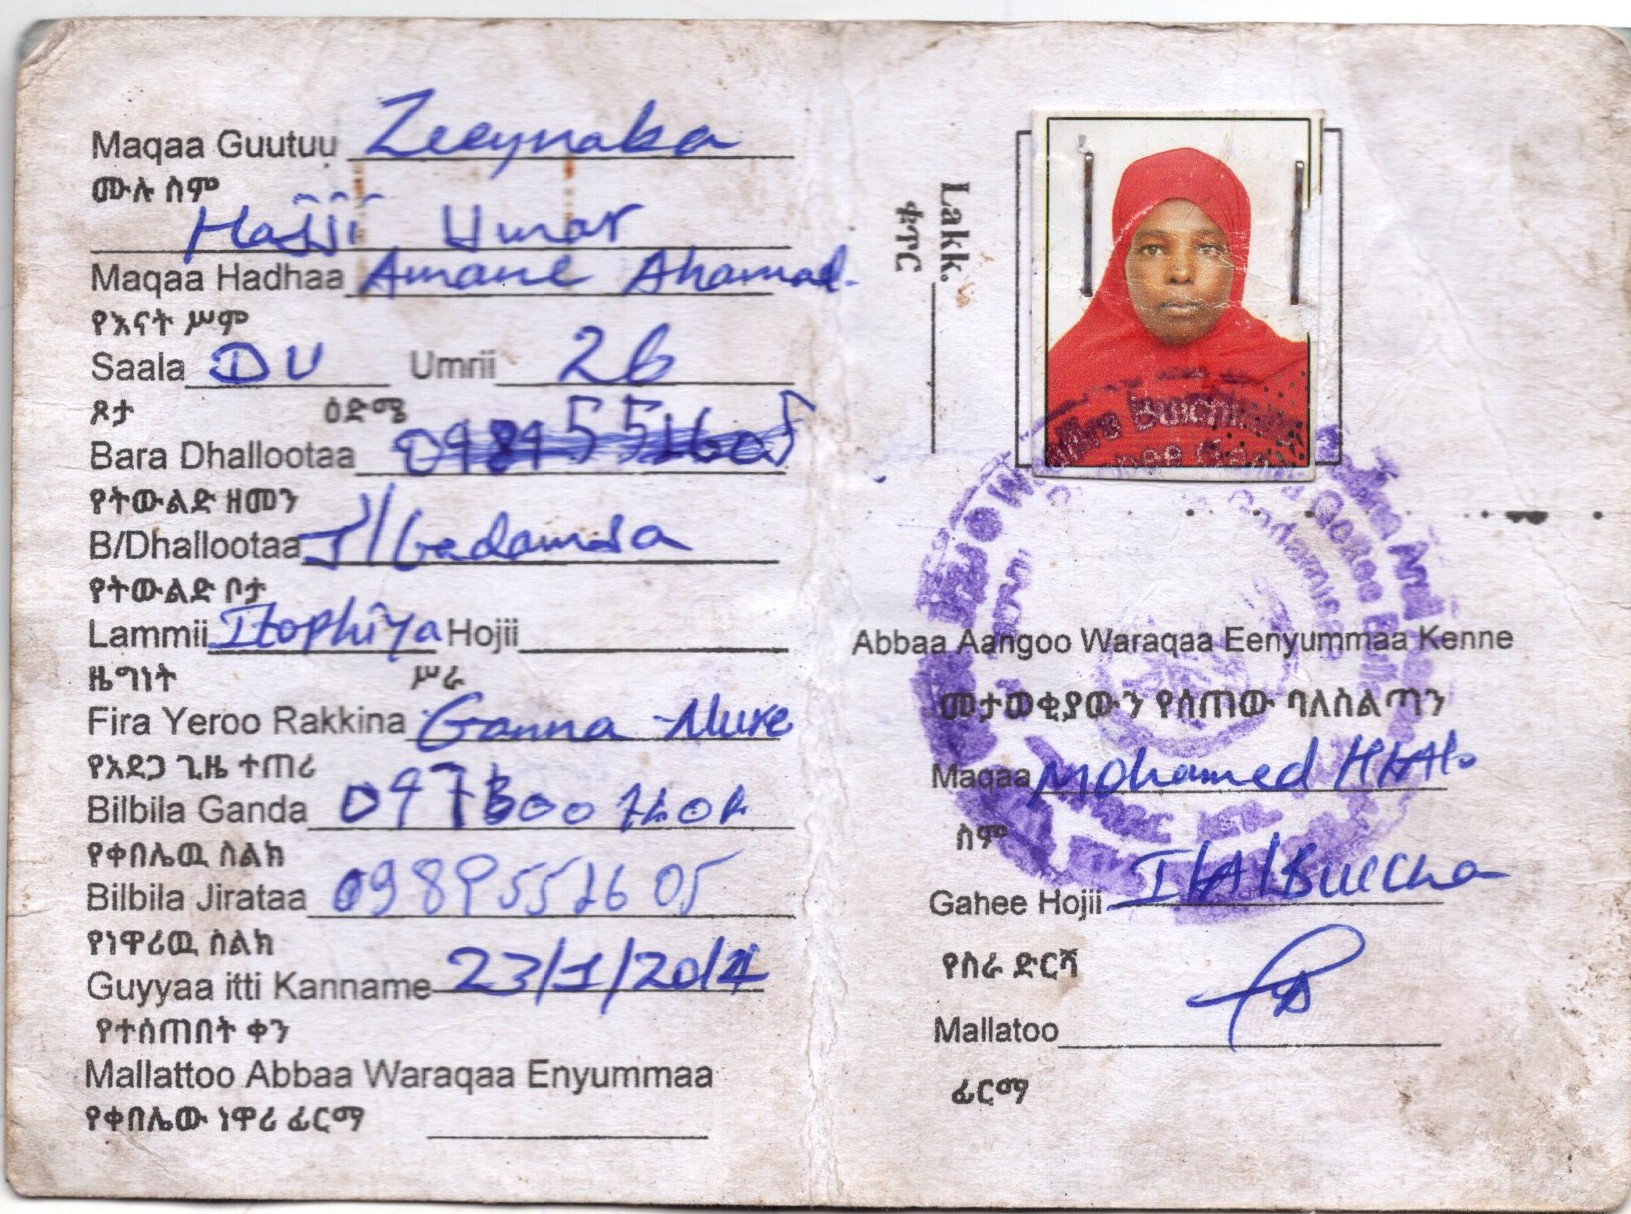 Maqaa Guutuu Zeeynaba
ሙሉ ስም
Hajji Umar
Maqaa Hadhaa Amane Ahamad.
የእናት ሥም
Saala DU Umrii 26
ጾታ ዕድሜ
Bara Dhallootaa
የትውልድ ዘመን
B/Dhallootaa J/Gadamsa
የትውልድ ቦታ
Lammii Itophiya Hojii
ዜግነት ሥራ
Fira Yeroo Rakkina Ganna Nure
የአደጋ ጊዜ ተጠሪ
Bilbila Ganda
የቀበሌዉ ስልክ
Bilbila Jirataa 0989551605
የነዋሪዉ ስልክ
Guyyaa itti Kanname 23/1/2014
የተሰጠበት ቀን
Mallattoo Abbaa Waraqaa Enyummaa
የቀበሌው ነዋሪ ፊርማ
Lakk.
ቁጥር
Abbaa Aangoo Waraqaa Eenyummaa Kenne
መታወቂያውን የሰጠው ባለስልጣን
Maqaa Mohamed
ስም
Gahee Hojii I/A/Bulcha
የስራ ድርሻ
Mallatoo
ፊርማ